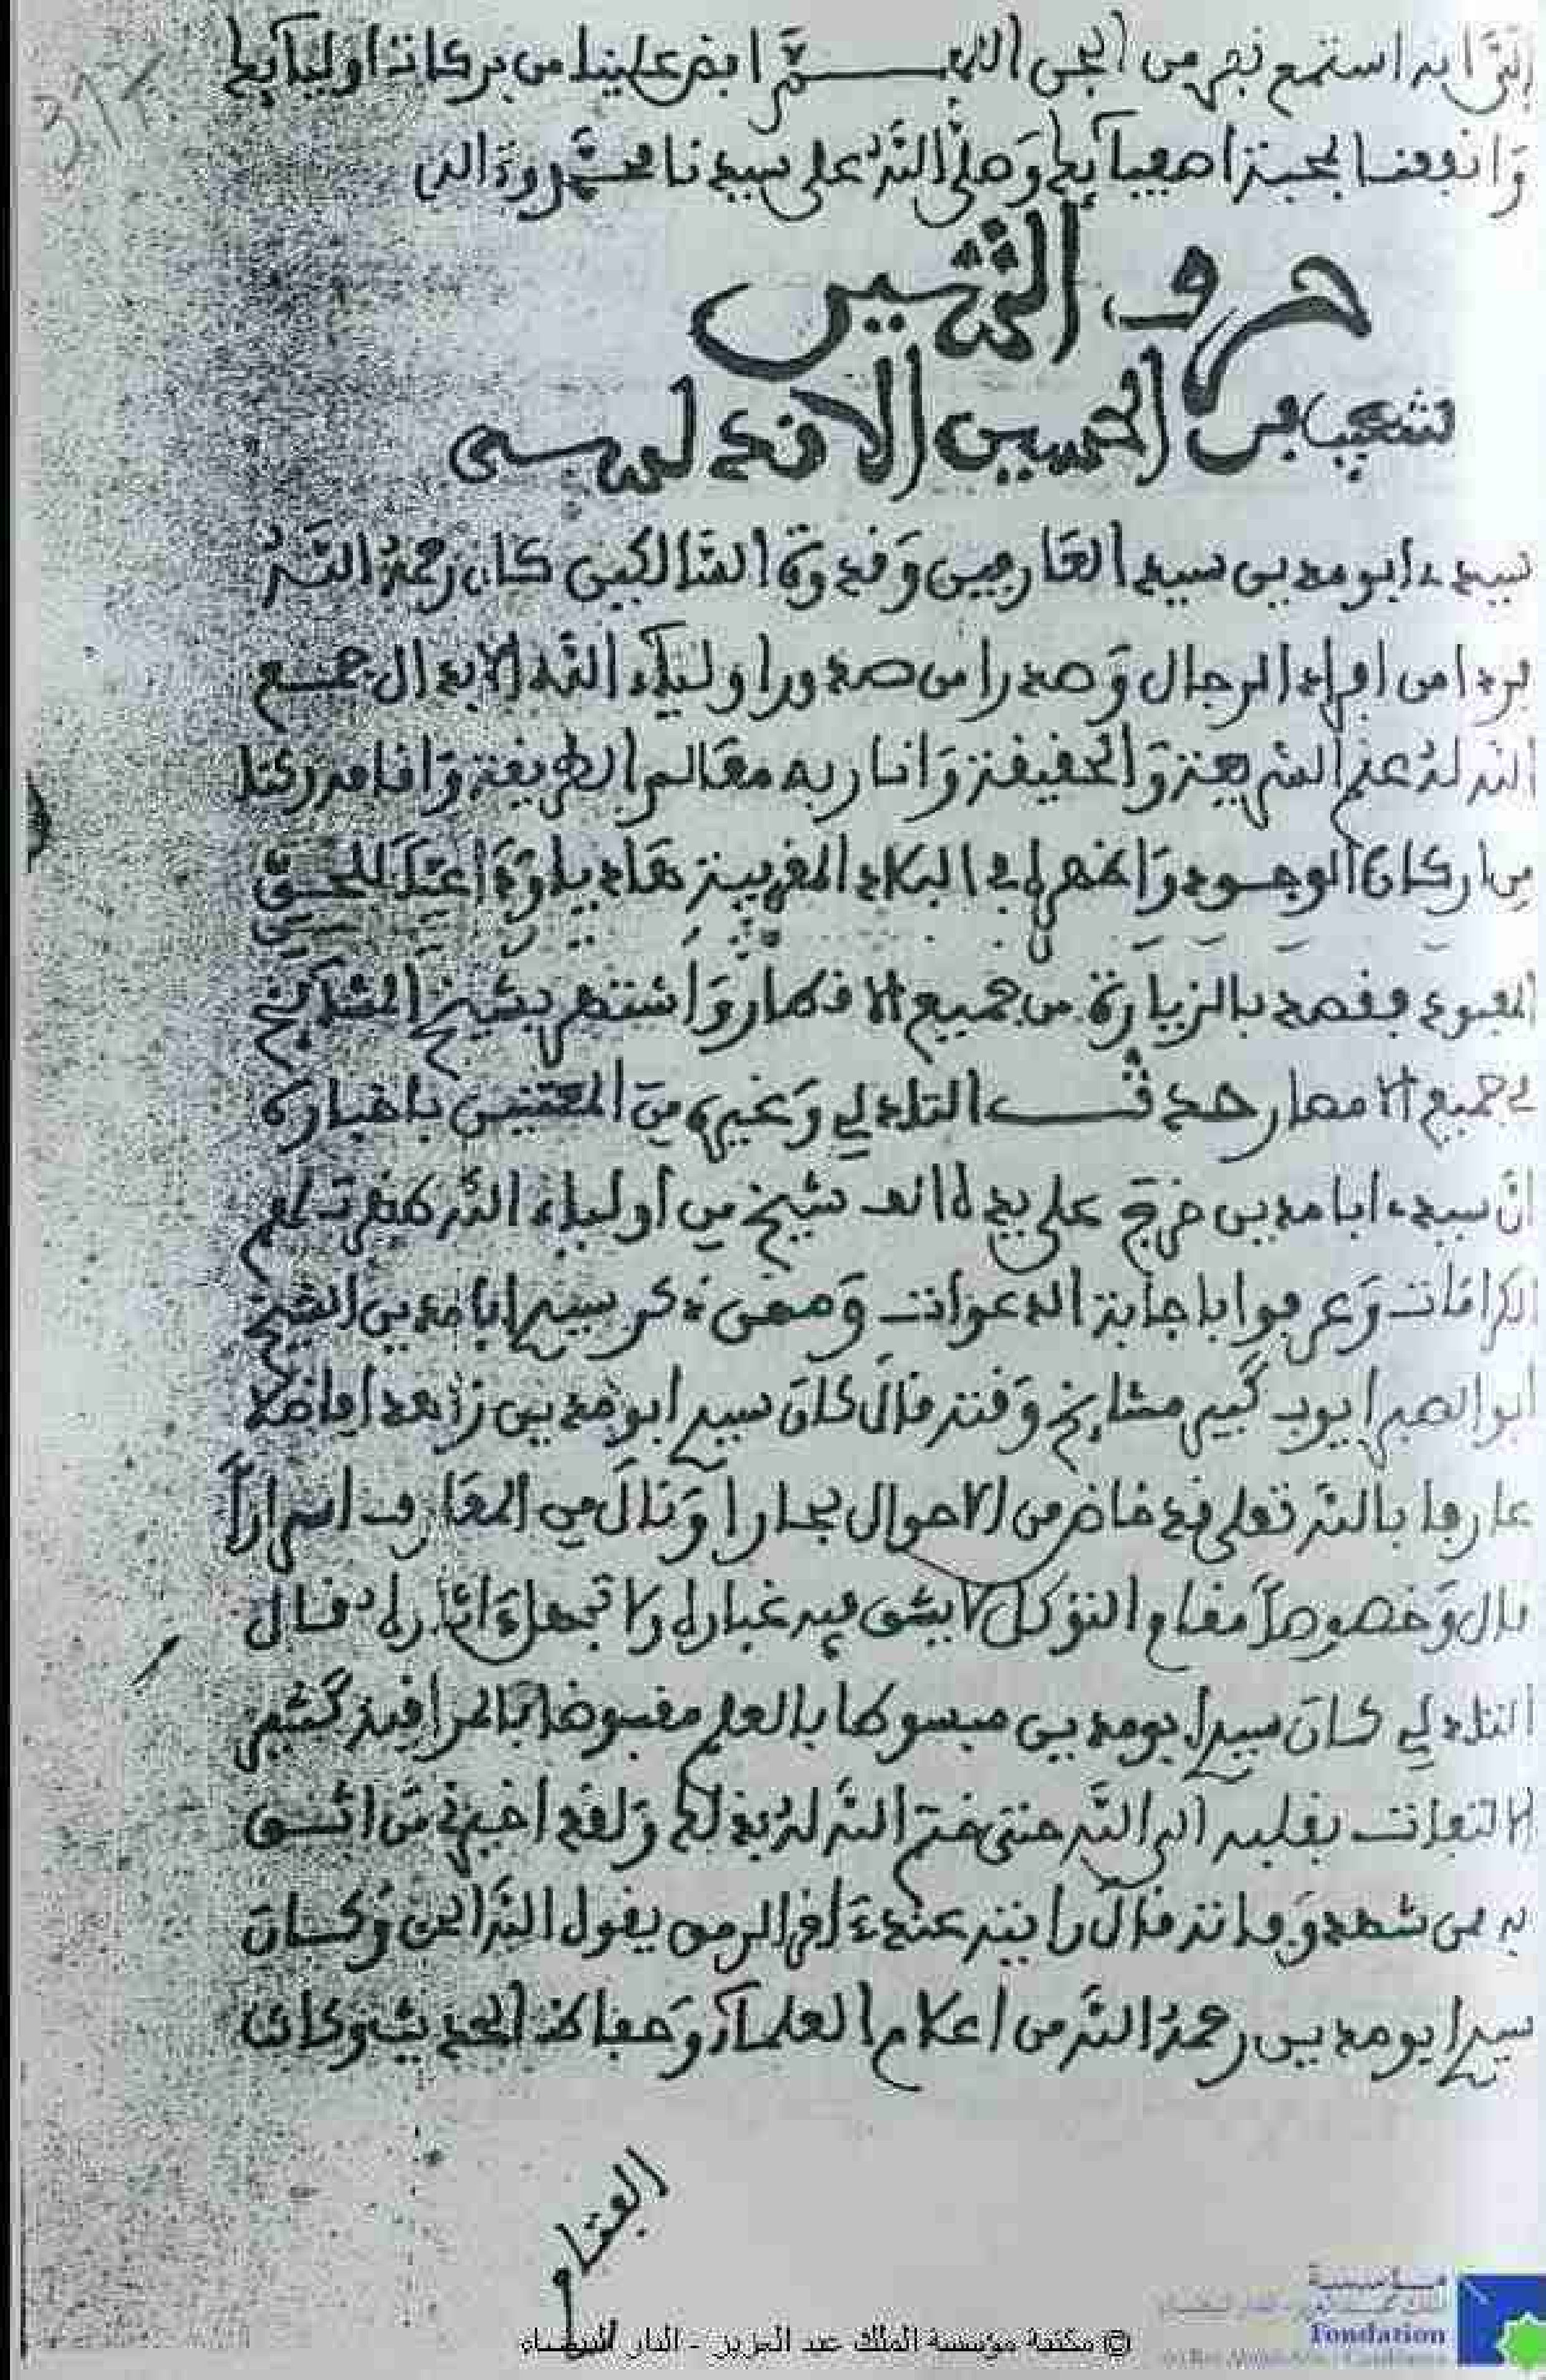 انه استمع نفر من الجن اللهم افض علينا من بركات اوليائك
وانفعنا بمحبة اصفيائك وصلى الله على سيدنا محمد وءاله
حرف الشين
شعيب بن الحسين الاندلسي
سيدي ابو مدين سيد العارفين وقدوة السالكين كان رحمه الله
فردا من افراد الرجال وصدرا من صدور اولياء الله الابدال جمع
الله له علم الشريعة والحقيقة وانار به معالم الطريقة واقامه ركنا
من اركان الوجود واظهره في البلاد المغربية هاديا وداعيا للحق
فقصد بالزيارة من جميع الاقطار واشتهر بشيخ المشائخ
في جميع الامصار حدث التادلي وغيره من المعتنين باخباره
ان سيدي ابا مدين خرج على يده الف شيخ من اولياء الله ظهرت لهم
الكرامات وعرفوا باجابة الدعوات وممن ذكر سيدي ابا مدين الشيخ
ابو الصبر ايوب كبير مشايخ وقته قال كان سيدي ابو مدين زاهدا فاضلا
عارفا بالله تعلى قد خاض من الاحوال بحارا ونال من المعارف اسرارا
قال وخصوصا مقام التوكل لا يشق فيه غباره ولا تجهل ءاثاره قال
التادلي كان سيدي ابو مدين مبسوطا بالعلم مقبوضا بالمراقبة كثير
الالتفات بقلبه الى الله حتى ختم الله له بذلك ولقد اخبرني من اثق
به ممن شهد وفاته قال رايته عند ءاخر الرمق يقول الله الحق وكان
سيدي ابو مدين رحمه الله من اعلام العلماء وحفاظ الحديث وكان
© مكتبة مؤسسة الملك عبد العزيز - الدار البيضاء
مؤسسة
Fondation